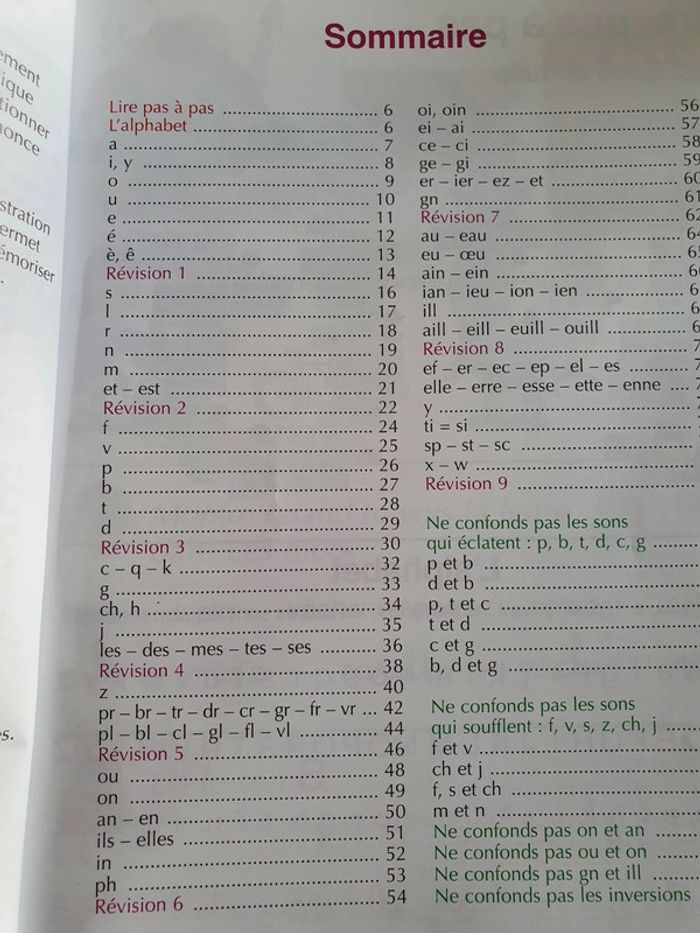 Sommaire
Lire pas à pas ........ 6
L'alphabet ........ 6
a ........ 7
i, y ........ 8
o ........ 9
u ........ 10
e ........ 11
é ........ 12
è, ê ........ 13
Révision 1 ........ 14
s ........ 16
l ........ 17
r ........ 18
n ........ 19
m ........ 20
et – est ........ 21
Révision 2 ........ 22
f ........ 24
v ........ 25
p ........ 26
b ........ 27
t ........ 28
d ........ 29
Révision 3 ........ 30
c – q – k ........ 32
g ........ 33
ch, h ........ 34
j ........ 35
les – des – mes – tes – ses ........ 36
Révision 4 ........ 38
z ........ 40
pr – br – tr – dr – cr – gr – fr – vr ... 42
pl – bl – cl – gl – fl – vl ........ 44
Révision 5 ........ 46
ou ........ 48
on ........ 49
an – en ........ 50
ils – elles ........ 51
in ........ 52
ph ........ 53
Révision 6 ........ 54
oi, oin ........ 56
ei – ai ........ 57
ce – ci ........ 58
ge – gi ........ 59
er – ier – ez – et ........ 60
gn ........ 61
Révision 7 ........ 62
au – eau ........ 64
eu – œu ........
ain – ein ........
ian – ieu – ion – ien ........
ill ........
aill – eill – euill – ouill ........
Révision 8 ........
ef – er – ec – ep – el – es ........
elle – erre – esse – ette – enne ....
y ........
ti = si ........
sp – st – sc ........
x – w ........
Révision 9 ........
Ne confonds pas les sons
qui éclatent : p, b, t, d, c, g ........
p et b ........
d et b ........
p, t et c ........
t et d ........
c et g ........
b, d et g ........
Ne confonds pas les sons
qui soufflent : f, v, s, z, ch, j ........
f et v ........
ch et j ........
f, s et ch ........
m et n ........
Ne confonds pas on et an ........
Ne confonds pas ou et on ........
Ne confonds pas gn et ill ........
Ne confonds pas les inversions